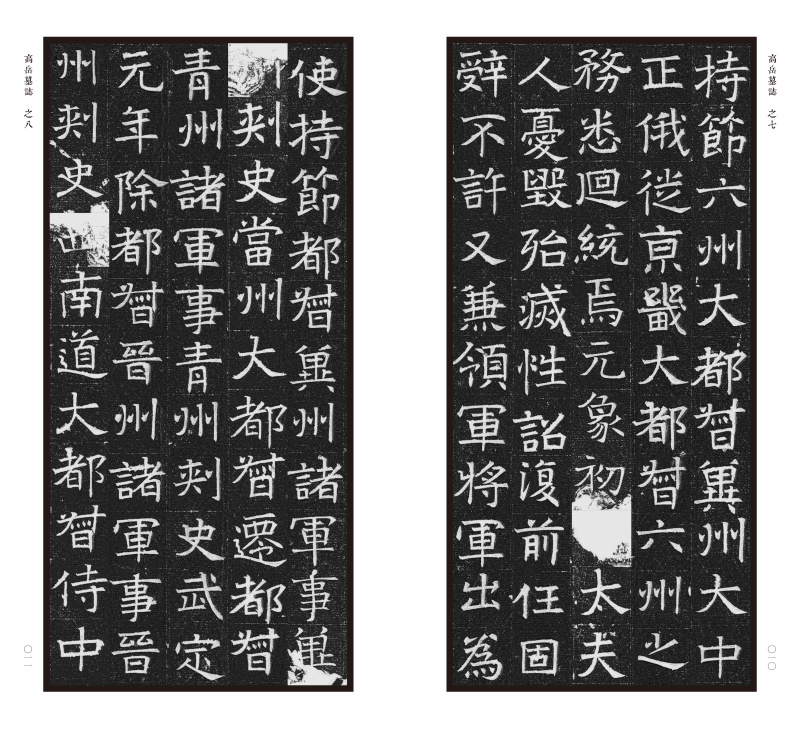 高岳墓誌 之七
持節六州大都督冀州大中
正俄從京畿大都督六州之
務悉迴統焉元象初太夫
人憂毀殆滅性詔復前任固
辭不許又兼領軍將軍出為
〇一〇
高岳墓誌 之八
使持節都督冀州諸軍事冀
州刺史當州大都督遷都督
青州諸軍事青州刺史武定
元年除都督晉州諸軍事晉
州刺史西南道大都督侍中
〇一一